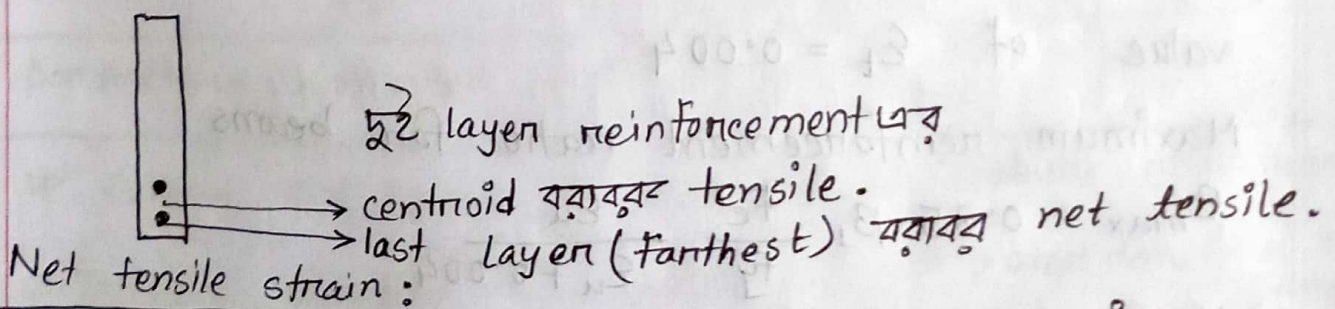 দুই layer reinforcement এর
centroid বরাবর tensile.
last layer (farthest) বরাবর net tensile.
Net tensile strain :